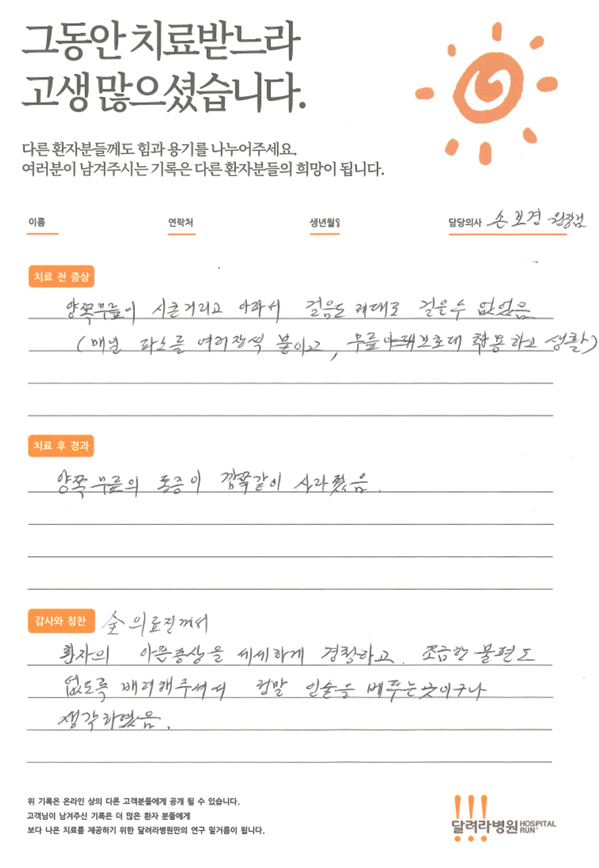 그동안 치료받느라
고생 많으셨습니다.
다른 환자분들께도 힘과 용기를 나누어주세요.
여러분이 남겨주시는 기록은 다른 환자분들의 희망이 됩니다.
이름 연락처 생년월일 담당의사 손보경 원장님
치료 전 증상
양쪽무릎이 시큰거리고 아파서 걸음도 제대로 걸을수 없었음
(매일 파스를 여러장씩 붙이고, 무릎 보호대 착용하고 생활)
치료 후 경과
양쪽 무릎의 통증이 깜쪽같이 사라졌음.
감사와 칭찬 全 의료진께서
환자의 아픈증상을 세세하게 경청하고 조금한 불편도
없도록 배려해주셔서 정말 인술을 베푸는곳이구나
생각하였음.
위 기록은 온라인 상의 다른 고객분들에게 공개 될 수 있습니다.
고객님이 남겨주신 기록은 더 많은 환자 분들에게
보다 나은 치료를 제공하기 위한 달려라병원만의 연구 밑거름이 됩니다.
!!!
달려라병원 HOSPITAL RUN